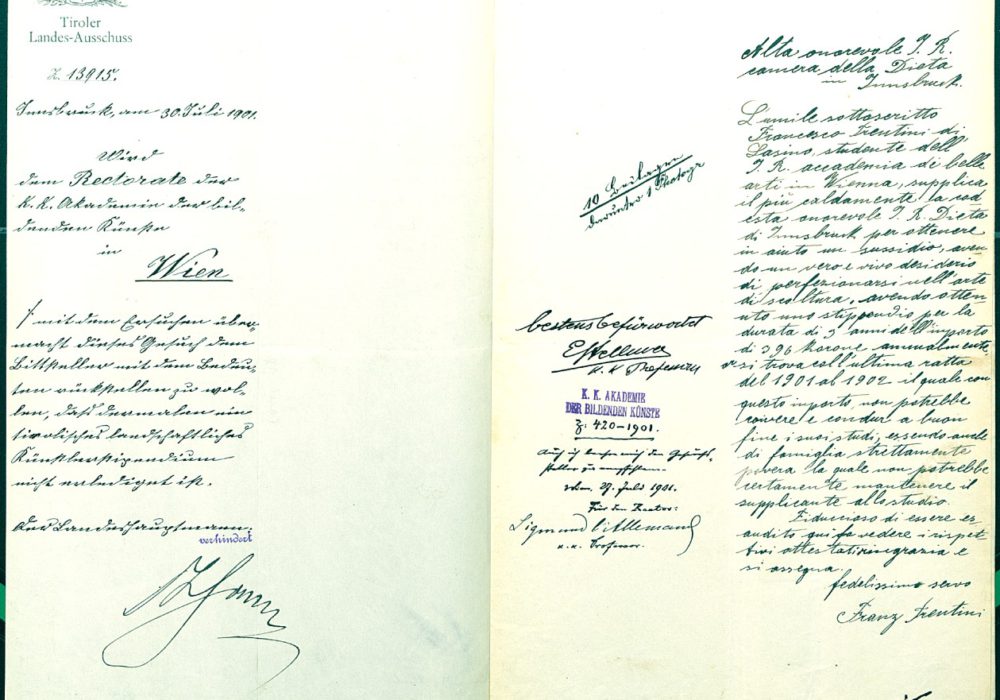 Tiroler
Landes-Ausschuss
Z. 13915.
Innsbruck, am 30. Juli 1901.
Wird
dem Rectorate der
k. k. Akademie der bil-
denden Künste
in
Wien
mit dem Ersuchen über-
macht dieses Gesuch dem
Bittsteller mit dem Bedeu-
ten rückstellen zu wol-
len, daß dermalen ein
tirolisches landschaftliches
Künstlerstipendium
nicht erledigt ist.
Der Landeshauptmann:
verhindert
10 Beilagen
darunter 1 Photogr
bestens befürwortet
EHellmer
k. k. Professor
K. K. AKADEMIE
DER BILDENDEN KÜNSTE
Z: 420-1901.
Auch ich beehre mich den Gesuch-
steller zu empfehlen.
Wien, 29. Juli 1901.
Für den Rector:
Sigmund l'Allemand
k. k. Professor.
Alta onorevole I. R.
camera della Dieta
in Innsbruck.
L'umile sottoscritto
Francesco Trentini di
Lasino, studente dell'
I. R. accademia di belle
arti in Wienna, supplica
il più caldamente la cod
esta onorevole I. R. Dieta
di Innsbruck per ottenere
in aiuto un sussidio, aven
do un vero e vivo desiderio
di perfezionarsi nell'arte
di scoltura, avendo otten-
uto uno stippendio per la
durata di 3 anni dell'importo
di 396 korone annualmente,
or si trova coll'ultima ratta
del 1901 al 1902 il quale con
questo importo, non potrebbe
vivere e condur a buon
fine i suoi studi, essendo anche
di famiglia strittamente
povera la quale non potrebbe
certamente mantenere il
supplicante allo studio.
Fiducioso di essere es-
audito qui fa vedere i rispet-
tivi attestati ringrazia e
si assegna.
fedelissimo servo
Franz Trentini